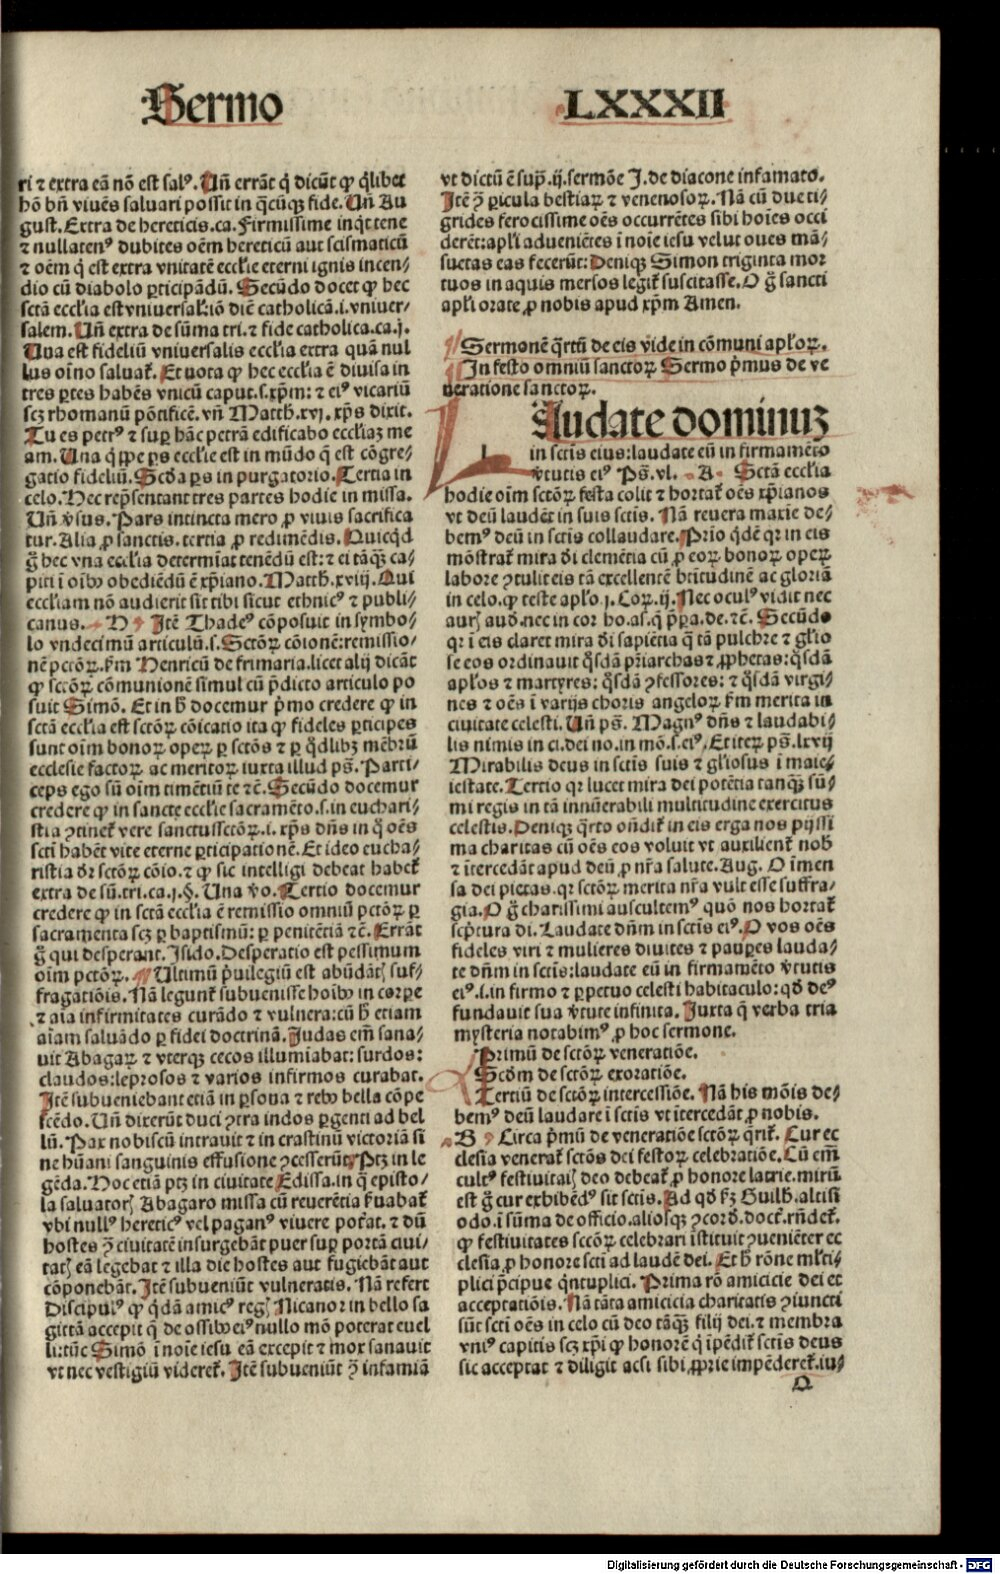 Sermo LXXXII
ri ⁊ extra eã nõ est salꝰ. Uñ errãt q̃ dicũt ꝙ q̃libet
hõ bñ viuẽs saluari possit in q̃cũqꝫ fide. Uñ Au
gust. Extra de hereticis. ca. Firmissime inq̃t tene
⁊ nullatenꝰ dubites oẽm hereticũ aut scismaticũ
⁊ oẽm q̃ est extra vnitatẽ ecclie eterni ignis incen/
dio cũ diabolo ꝑticipãdũ. Secũdo docet ꝙ hec
sctã ecclia est vniuersal̃: iõ diẽ catholicã. i. vniuer/
salem. Uñ extra de sũma tri. ⁊ fide catholica. ca. j.
Una est fideliũ vniuersalis ecclia extra quã nul
lus oĩno saluat᷑. Et nota ꝙ hec ecclia ẽ diuisa in
tres ꝑtes habẽs vnicũ caput. s. xp̃m: ⁊ eiꝰ vicariũ
scꝫ rhomanũ põtificẽ. vñ Matth. xvj. xp̃s dixit.
Tu es petrꝰ ⁊ suꝑ hãc petrã edificabo eccliaꝫ me
am. Una q̃ꝓpe ꝑs ecclie est in mũdo q̃ est cõgre/
gatio fideliũ. Scd̃a ꝑs in purgatorio. Tertia in
celo. Hec rep̃sentant tres partes hodie in missa.
Uñ v̾sus. Pars intincta mero ꝓ viuis sacrifica
tur. Alia ꝓ sanctis. tertia ꝓ redimẽdis. Quicq̃d
g̃ hec vna ecclia determĩat tenẽdũ est: ⁊ ei tãq̃ꝫ ca/
piti ĩ oĩbꝰ obediẽdũ ẽ xp̃iano. Matth. xviij. Qui
eccliam nõ audierit sit tibi sicut ethnicꝰ ⁊ publi/
canus. H Itẽ Thadeꝰ cõposuit in symbo/
lo vndecimũ articulũ. s. Sctõꝝ cõionẽ: remissio/
nẽ pctõꝝ. ẜm Henricũ de frimaria. licet alij dicãt
ꝙ sctõꝝ cõmunionẽ simul cũ p̃dicto articulo po
suit Simõ. Et in h̾ docemur p̃mo credere ꝙ in
sctã ecclia est sctõꝝ cõicatio ita ꝙ fideles ꝑticipes
sunt oĩm bonoꝝ opeꝝ ꝑ sctõs ⁊ ꝑ q̃dlibꝫ mẽbrũ
ecclesie factoꝝ ac meritoꝝ iuxta illud ps̃. Parti/
ceps ego sũ oĩm timẽtiũ te ⁊c̃. Secũdo docemur
credere ꝙ in sancte ecclie sacramẽto. s. in euchari/
stia ꝯtinet᷑ vere sanctus sctõꝝ. i. xp̃s dñs in q̃ oẽs
scti habẽt vite eterne ꝑticipationẽ. Et ideo eucha/
ristia dr̃ sctõꝝ cõio. ⁊ ꝙ sic intelligi debeat habet᷑
extra de sũ. tri. ca. j. §. Una v̾o. Tertio docemur
credere ꝙ in sctã ecclia ẽ remissio omniũ pctõꝝ ꝑ
sacramenta scꝫ ꝑ baptismũ: ꝑ penitẽtiã ⁊c̃. Errãt
g̃ qui desperant. Isido. Desperatio est pessimum
oĩm pctõꝝ. ¶ Ultimũ p̃uilegiũ est abũdãtꝭ suf/
fragatiõis. Nã legunt᷑ subuenisse hoĩbꝰ in corꝑe
⁊ aĩa infirmitates curãdo ⁊ vulnera: cũ h̾ etiam
aĩam saluãdo ꝑ fidei doctrinã. Judas em̃ sana/
uit Abagaꝝ ⁊ vterqꝫ cecos illumĩabat: surdos:
claudos: leprosos ⁊ varios infirmos curabat.
Itẽ subueniebant etiã in ꝑsona ⁊ rebꝰ bella cõpe
scẽdo. Uñ dixerũt duci ꝯtra indos ꝑgenti ad bel
lũ. Pax nobiscũ intrauit ⁊ in crastinũ victoriã si
ne hũani sanguinis effusione ꝯcesserũt. Ptꝫ in le
gẽda. Hoc etiã ptꝫ in ciuitate Edissa. in q̃ episto/
la saluatorꝭ Abagaro missa cũ reuerẽtia ẜuabat᷑
vbi nullꝰ hereticꝰ vel paganꝰ viuere poẽat. ⁊ dũ
hostes ꝯ̃ ciuitatẽ insurgebãt puer suꝑ portã ciui/
tatꝭ eã legebat ⁊ illa die hostes aut fugiebãt aut
cõponebãt. Itẽ subueniũt vulneratis. Nã refert
Discipulꝰ ꝙ q̃dã amicꝰ regꝭ Nicanor in bello sa
gittã accepit q̃ de ossibꝰ eiꝰ nullo mõ poterat euel
li: tũc Simõ ĩ noĩe iesu eã excepit ⁊ mox sanauit
vt nec vestigiũ videret᷑. Itẽ subueniũt ꝯ̃ infamiã
vt dictũ ẽ sup̃. ij. sermõe J. de diacone infamato.
Itẽ ꝯ̃ ꝑicula bestiaꝝ ⁊ venenosoꝝ. Nã cũ due ti/
grides ferocissime oẽs occurrẽtes sibi hoĩes occi
derẽt: apli aduenientes ĩ noĩe iesu velut oues mã/
suetas eas fecerũt: Deniqꝫ Simon triginta mor
tuos in aquis mersos legit᷑ suscitasse. O g̃ sancti
apli orate ꝓ nobis apud xp̃m Amen.
¶ Sermonẽ q̃rtũ de eis vide in cõmuni apl̃oꝝ.
¶ In festo omniũ sanctoꝝ Sermo p̃mus de ve
neratione sanctoꝝ.
Laudate dominuꝫ
in sctis eius: laudate eũ in firmamẽto
v̾tutis eiꝰ Ps̃. vl. A. Sctã ecclia
hodie oĩm sctõꝝ festa colit ⁊ hortat᷑ oẽs xp̃ianos
vt deũ laudẽt in suis sctis. Nã reuera maxie de/
bemꝰ deũ in sctis collaudare. Prĩo q̃dẽ qꝛ in eis
mõstrat᷑ mira d̾i clemẽtia cũ ꝓ eoꝝ bonoꝝ opeꝝ
labore ꝯtulit eis tã excellentẽ btĩtudinẽ ac gloriã
in celo. ꝙ teste apl̃o. j. Coꝝ. ij. Nec oculꝰ vidit nec
aurꝭ aud̾. nec in cor ho. as. q̃ p̃pa. de. ⁊c̃. Secũdo
qꝛ ĩ eis claret mira d̾i sapiẽtia q̃ tã pulchre ⁊ gl̃io
se eos ordinauit q̃sdã p̃riarchas ⁊ ꝓphetas: q̃sdã
apl̃os ⁊ martyres: q̃sdã ꝯfessores: ⁊ q̃sdã virgi/
nes ⁊ oẽs ĩ varijs choris angeloꝝ ẜm merita in
ciuitate celesti. Uñ ps̃. Magnꝰ dñs ⁊ laudabi/
lis nimis in ci. dei no. in mõ. s. eiꝰ. Et iteꝝ ps̃. lxvij
Mirabilis deus in sctis suis ⁊ gl̃iosus ĩ maie/
iestate. Tertio qꝛ lucet mira dei potẽtia tanq̃ꝫ sũ/
mi regis in tã innũerabili multitudine exercitus
celestis. Deniqꝫ q̃rto oñdit᷑ in eis erga nos pijssi
ma charitas cũ oẽs eos voluit vt auxilient᷑ nob̾
⁊ ĩtercedãt apud deũ ꝓ nr̃a salute. Aug. O ĩmen
sa dei pietas. qꝛ sctõꝝ merita nr̃a vult esse suffra/
gia. O g̃ charissimi auscultemꝰ quõ nos hortat᷑
scp̃tura di. Laudate dñm in sctis eiꝰ. O vos oẽs
fideles viri ⁊ mulieres diuites ⁊ pauꝑes lauda/
te dñm in sctis: laudate eũ in firmamẽto v̾tutis
eiꝰ. i. in firmo ⁊ ꝑpetuo celesti habitaculo: qd̾ deꝰ
fundauit sua v̾tute infinita. Juxta q̃ verba tria
mysteria notabimꝰ ꝓ hoc sermone.
Primũ de sctõꝝ veneratiõe.
Scd̾m de sctõꝝ exoratiõe.
Tertiũ de sctõꝝ intercessiõe. Nã his mõis de/
bemꝰ deũ laudare ĩ sctis vt itercedãt ꝓ nobis.
B Circa p̃mũ de veneratiõe sctõꝝ q̃rit᷑. Cur ec
clesia venerat᷑ sctõs dei festoꝝ celebratiõe. Cũ em̃
cultꝰ festiuitatꝭ deo debeat᷑ ꝓ honore latrie. mirũ
est g̃ cur exhibẽdꝰ sit sctis. Ad qd̾ ẜꝫ Guilh̾. altisi
odo. ĩ sũma de officio. aliosqꝫ ꝯcord̾. doct᷑. rñdet᷑.
ꝙ festiuitates sctõꝝ celebrari ĩstituit ꝯueniẽter ec
clesia ꝓ honore scti ad laudẽ dei. Et h̾ rõne ml̃ti/
plici p̃cipue q̃ntuplici. Prima rõ amicicie dei et
acceptatiõis. Nã tãta amicicia charitatis ꝯiuncti
sũt scti oẽs in celo cũ deo tãq̃ꝫ filij dei. ⁊ membra
vniꝰ capitis scꝫ xp̃i ꝙ honorẽ q̃ ĩpẽdit᷑ sctis deus
sic acceptat ⁊ diligit acsi sibi ꝓprie impẽderet᷑. iu/
Q
Digitalisierung gefördert durch die Deutsche Forschungsgemeinschaft - DFG